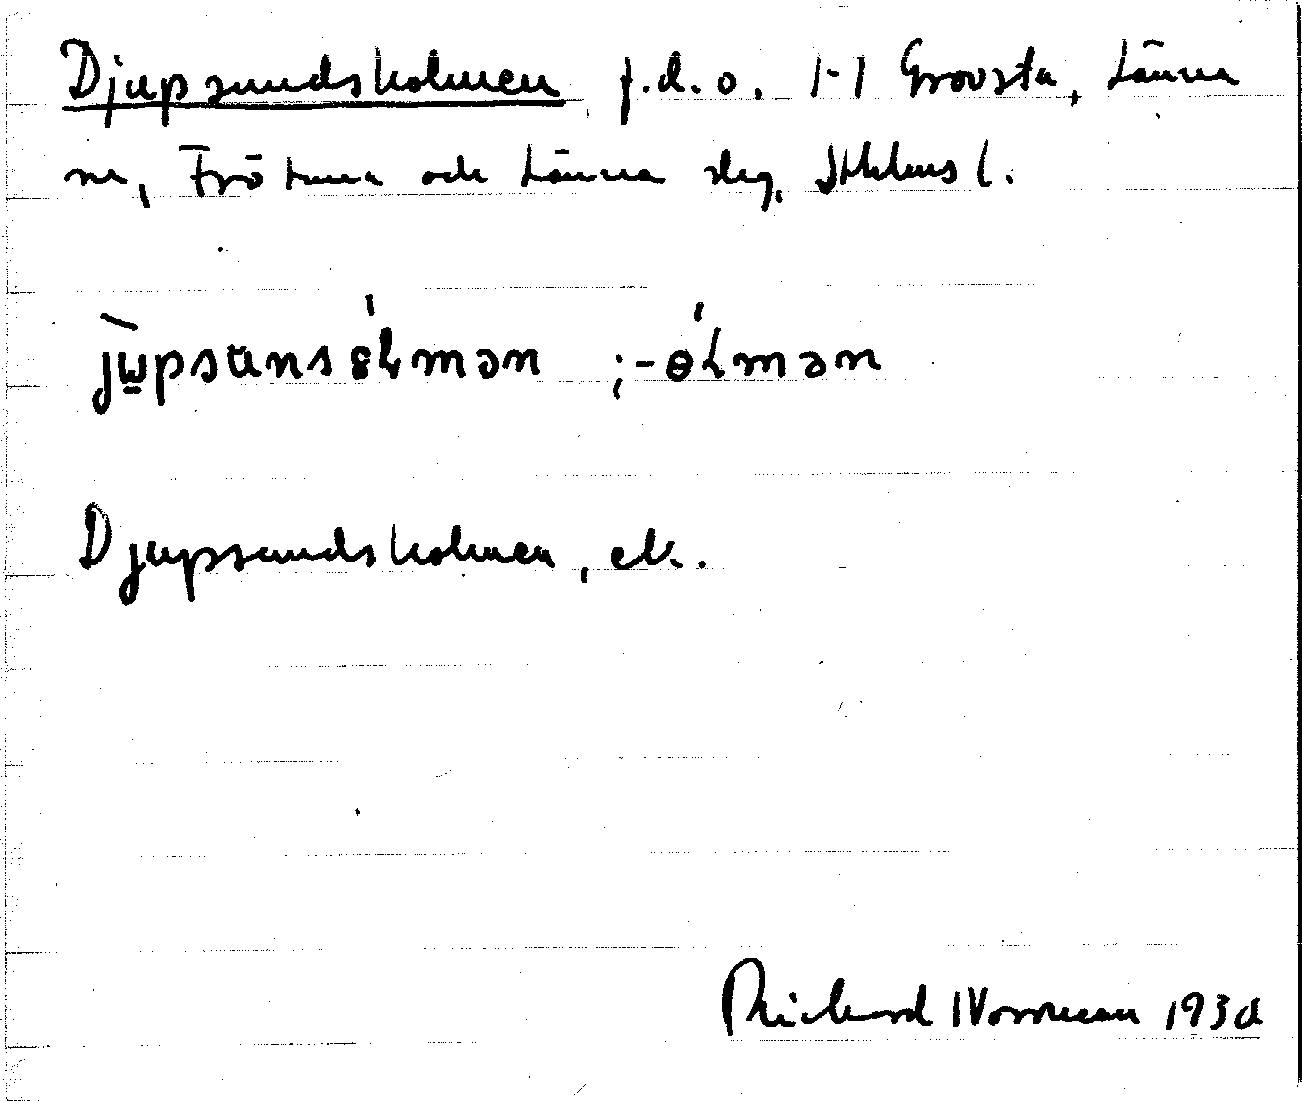 Djupsundsholmen f.d.o. 1-1 Grovsta, Länna
sn, Frötuna och Länna slg, Sthlms l.
jùpsunsólmən ; -ólmən
Djupsundsholmen, ek.
Rickard Norrman 193